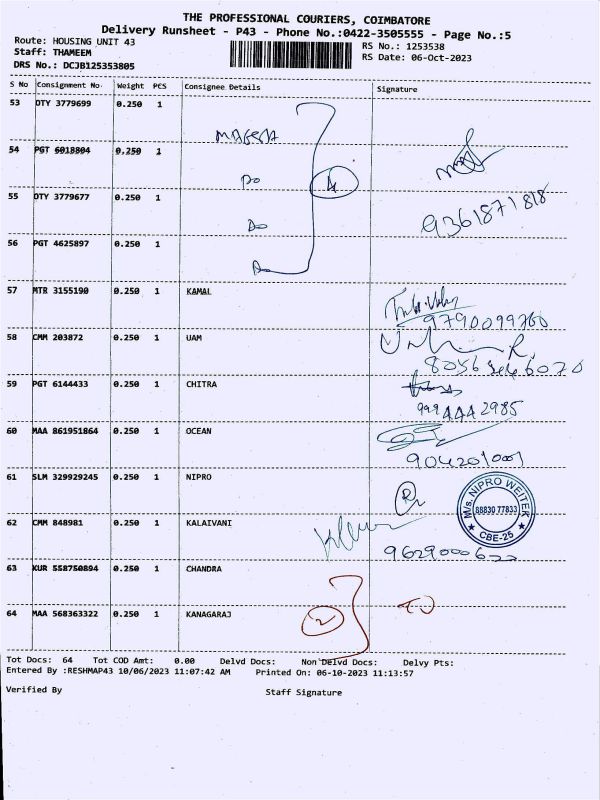 THE PROFESSIONAL COURIERS, COIMBATORE
Delivery Runsheet - P43 - Phone No.:0422-3505555 - Page No.:5
Route: HOUSING UNIT 43
RS No.: 1253538
Staff: THAMEEM
RS Date: 06-Oct-2023
DRS No.: DCJB125353805
S No Consignment No. Weight PCS Consignee Details Signature
53 OTY 3779699 0.250 1
54 PGT 6018804 0.250 1
Do
55 OTY 3779677 0.250 1
9361871818
Do
56 PGT 4625897 0.250 1
57 MTR 3155190 0.250 1 KAMAL
9790099760
58 CMM 203872 0.250 1 UAM
59 PGT 6144433 0.250 1 CHITRA
9994442985
60 MAA 861951864 0.250 1 OCEAN
9042010001
61 SLM 329929245 0.250 1 NIPRO
M/s. NIPRO WEITEK
88830 77833
CBE-25
62 CMM 848981 0.250 1 KALAIVANI
63 KUR 558750894 0.250 1 CHANDRA
64 MAA 568363322 0.250 1 KANAGARAJ
2
Tot Docs: 64 Tot COD Amt: 0.00 Delvd Docs: Non Delvd Docs: Delvy Pts:
Entered By :RESHMAP43 10/06/2023 11:07:42 AM Printed On: 06-10-2023 11:13:57
Verified By Staff Signature